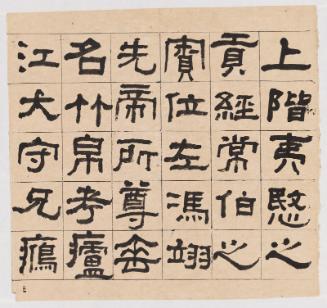 上階夷愍之
貢經常伯之
寮位左馮翊
先帝所尊垂
名竹帛考廬
江太守兄鴈